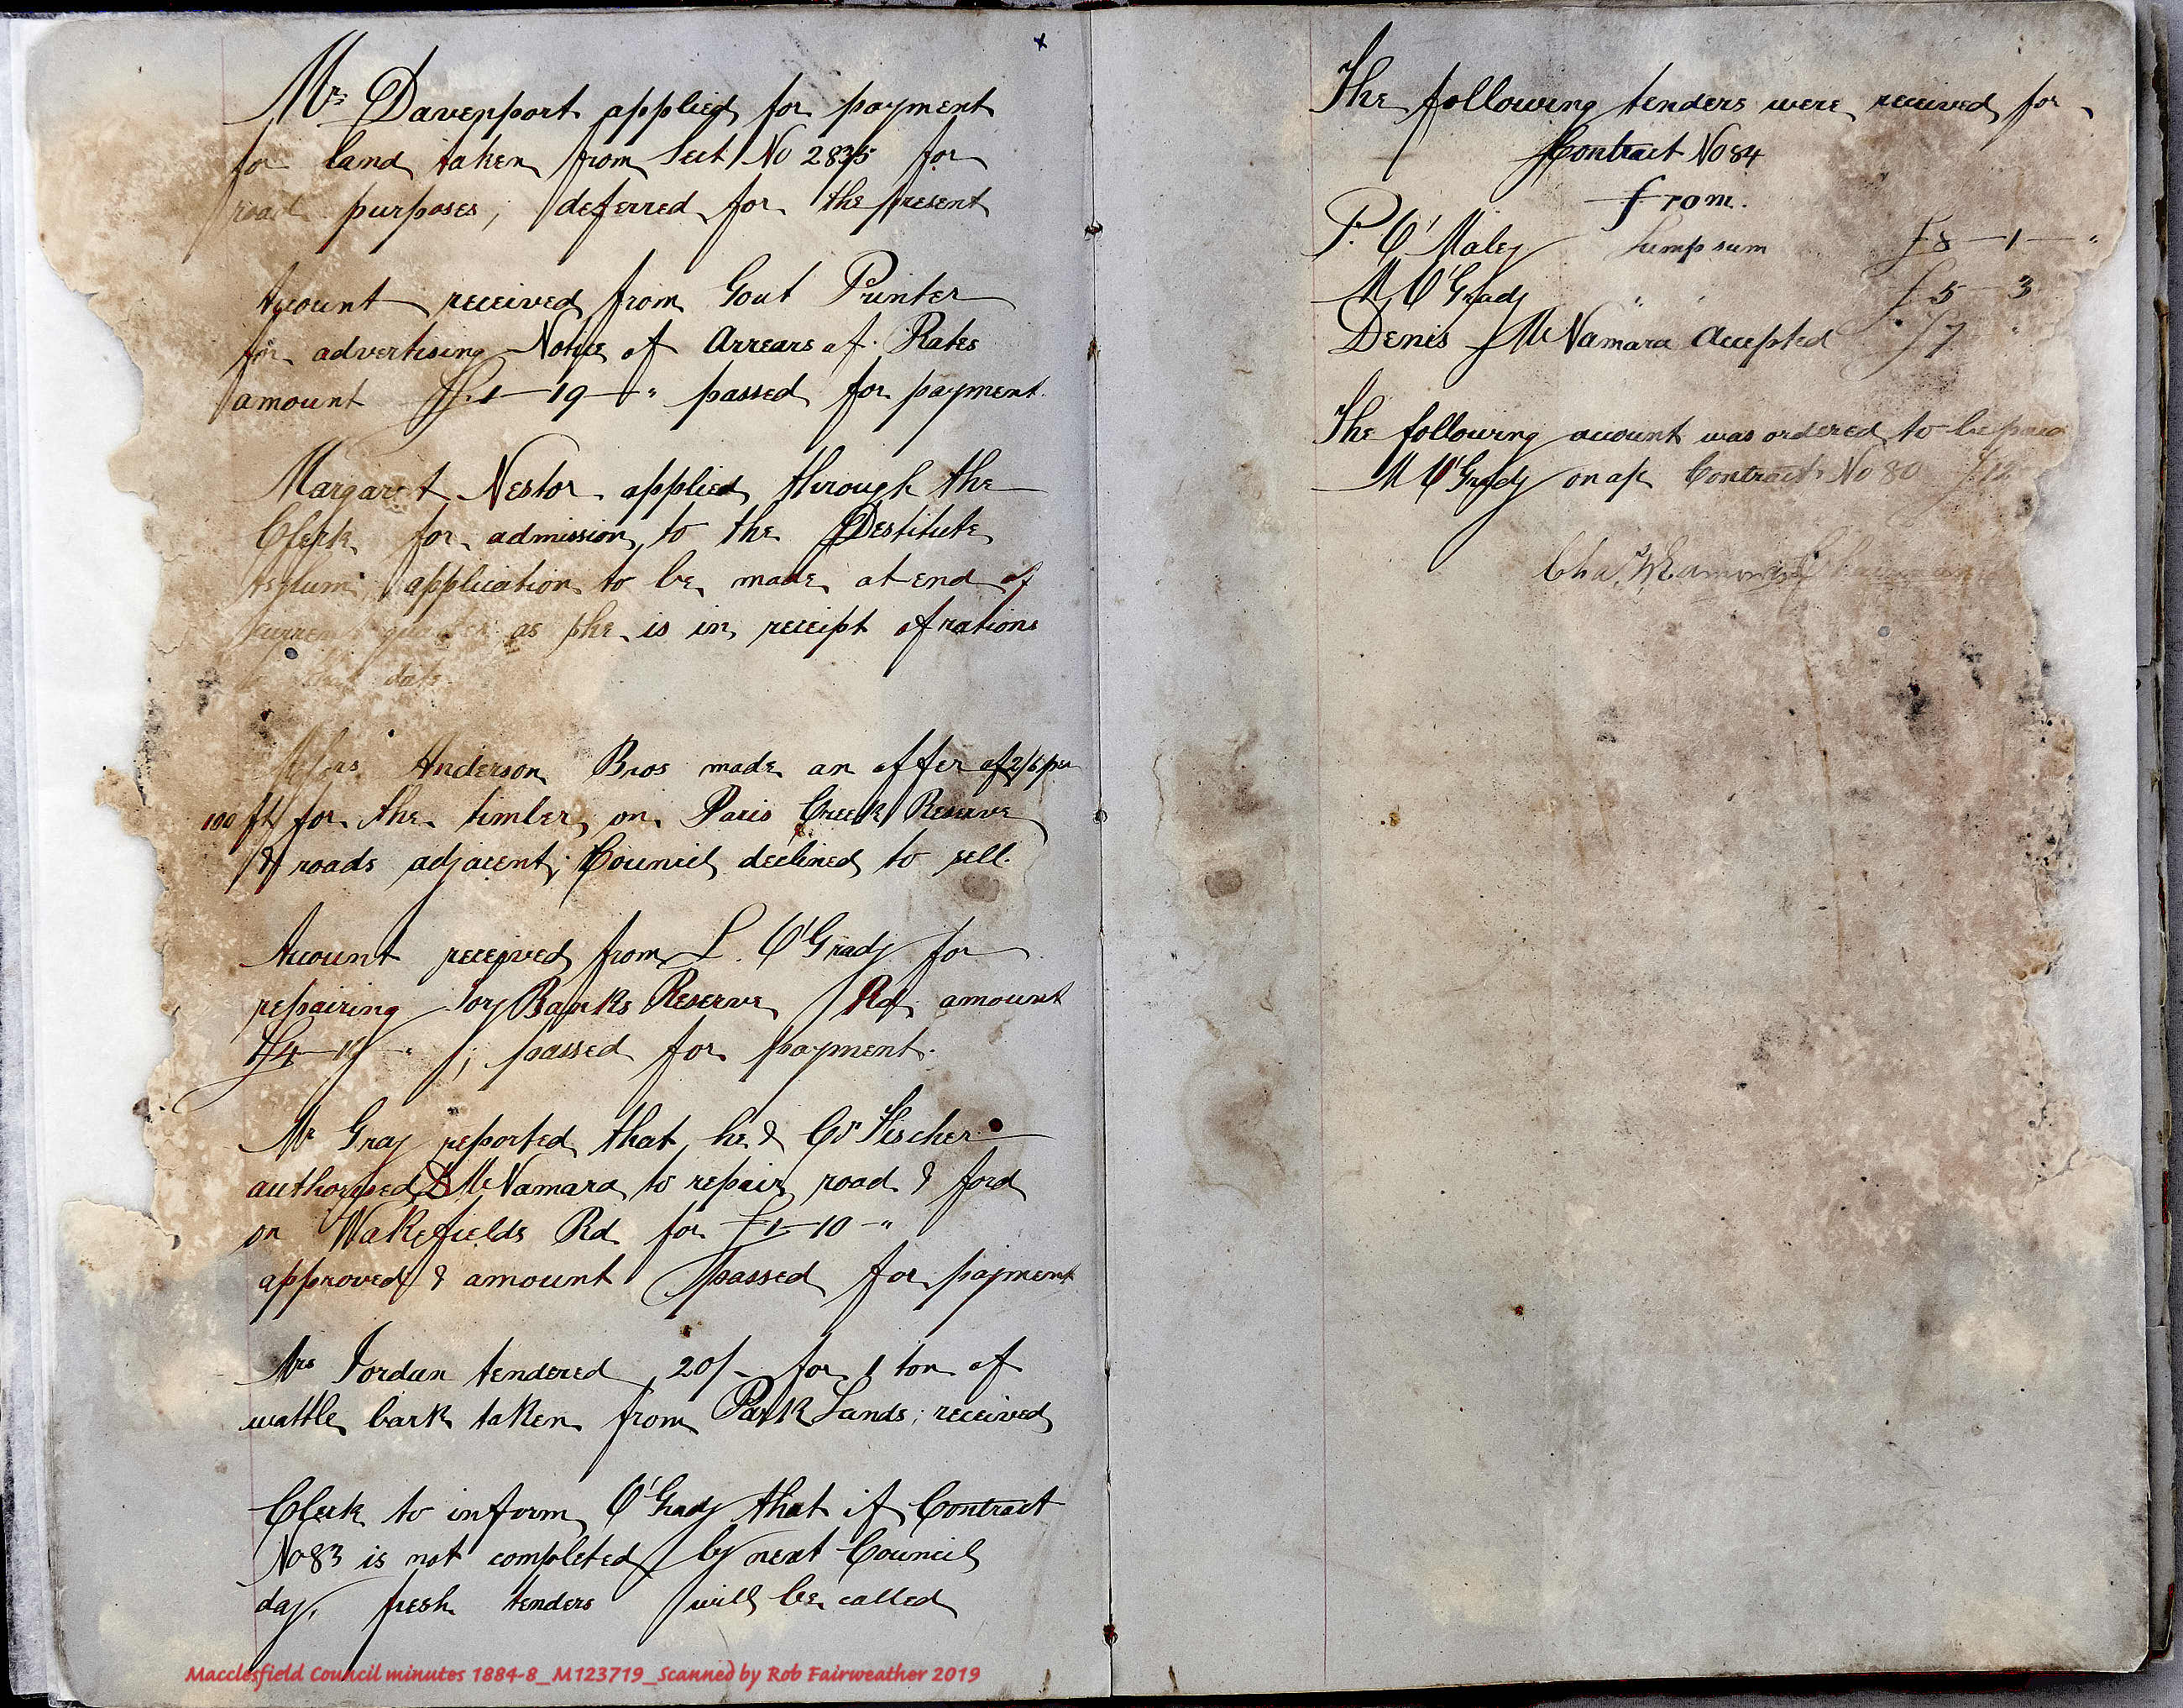 x
Mrs Davenport applied for payment
for land taken from Sect No 2835 for
road purposes; deferred for the present
Account received from Govt Printer
for advertising Notice of Arrears of Rates
amount £1-19-" passed for payment.
Margaret Nestor applied through the
Clerk for admission to the Destitute
Asylum; application to be made at end of
current quarter as she is in receipt of rations
to that date.
Messrs Anderson Bros made an offer of 2/6 per
100 ft for the timber on Paris Creek Reserve
& roads adjacent; Council declined to sell.
Account received from L. O'Grady for
repairing Joy Banks Reserve Rd, amount
£4 ; passed for payment.
Mr Gray reported that he & Cr Fischer
authorised D McNamara to repair road & ford
on Wakefields Rd for £1-10-"
approved & amount passed for payment
Mrs Jordan tendered 20/- for 1 ton of
wattle bark taken from Park Lands; received
Clerk to inform O'Grady that if Contract
No 83 is not completed by next Council
day, fresh tenders will be called
The following tenders were received for
Contract No 84
from.
P. O'Maley Lump sum £8-1-"
M O'Grady " " £5-3
Denis McNamara Accepted £7 "
The following account was ordered to be paid
M O'Grady on a/c Contract No 80 £12
Chairman
Macclesfield Council minutes 1884-8_M123719_Scanned by Rob Fairweather 2019